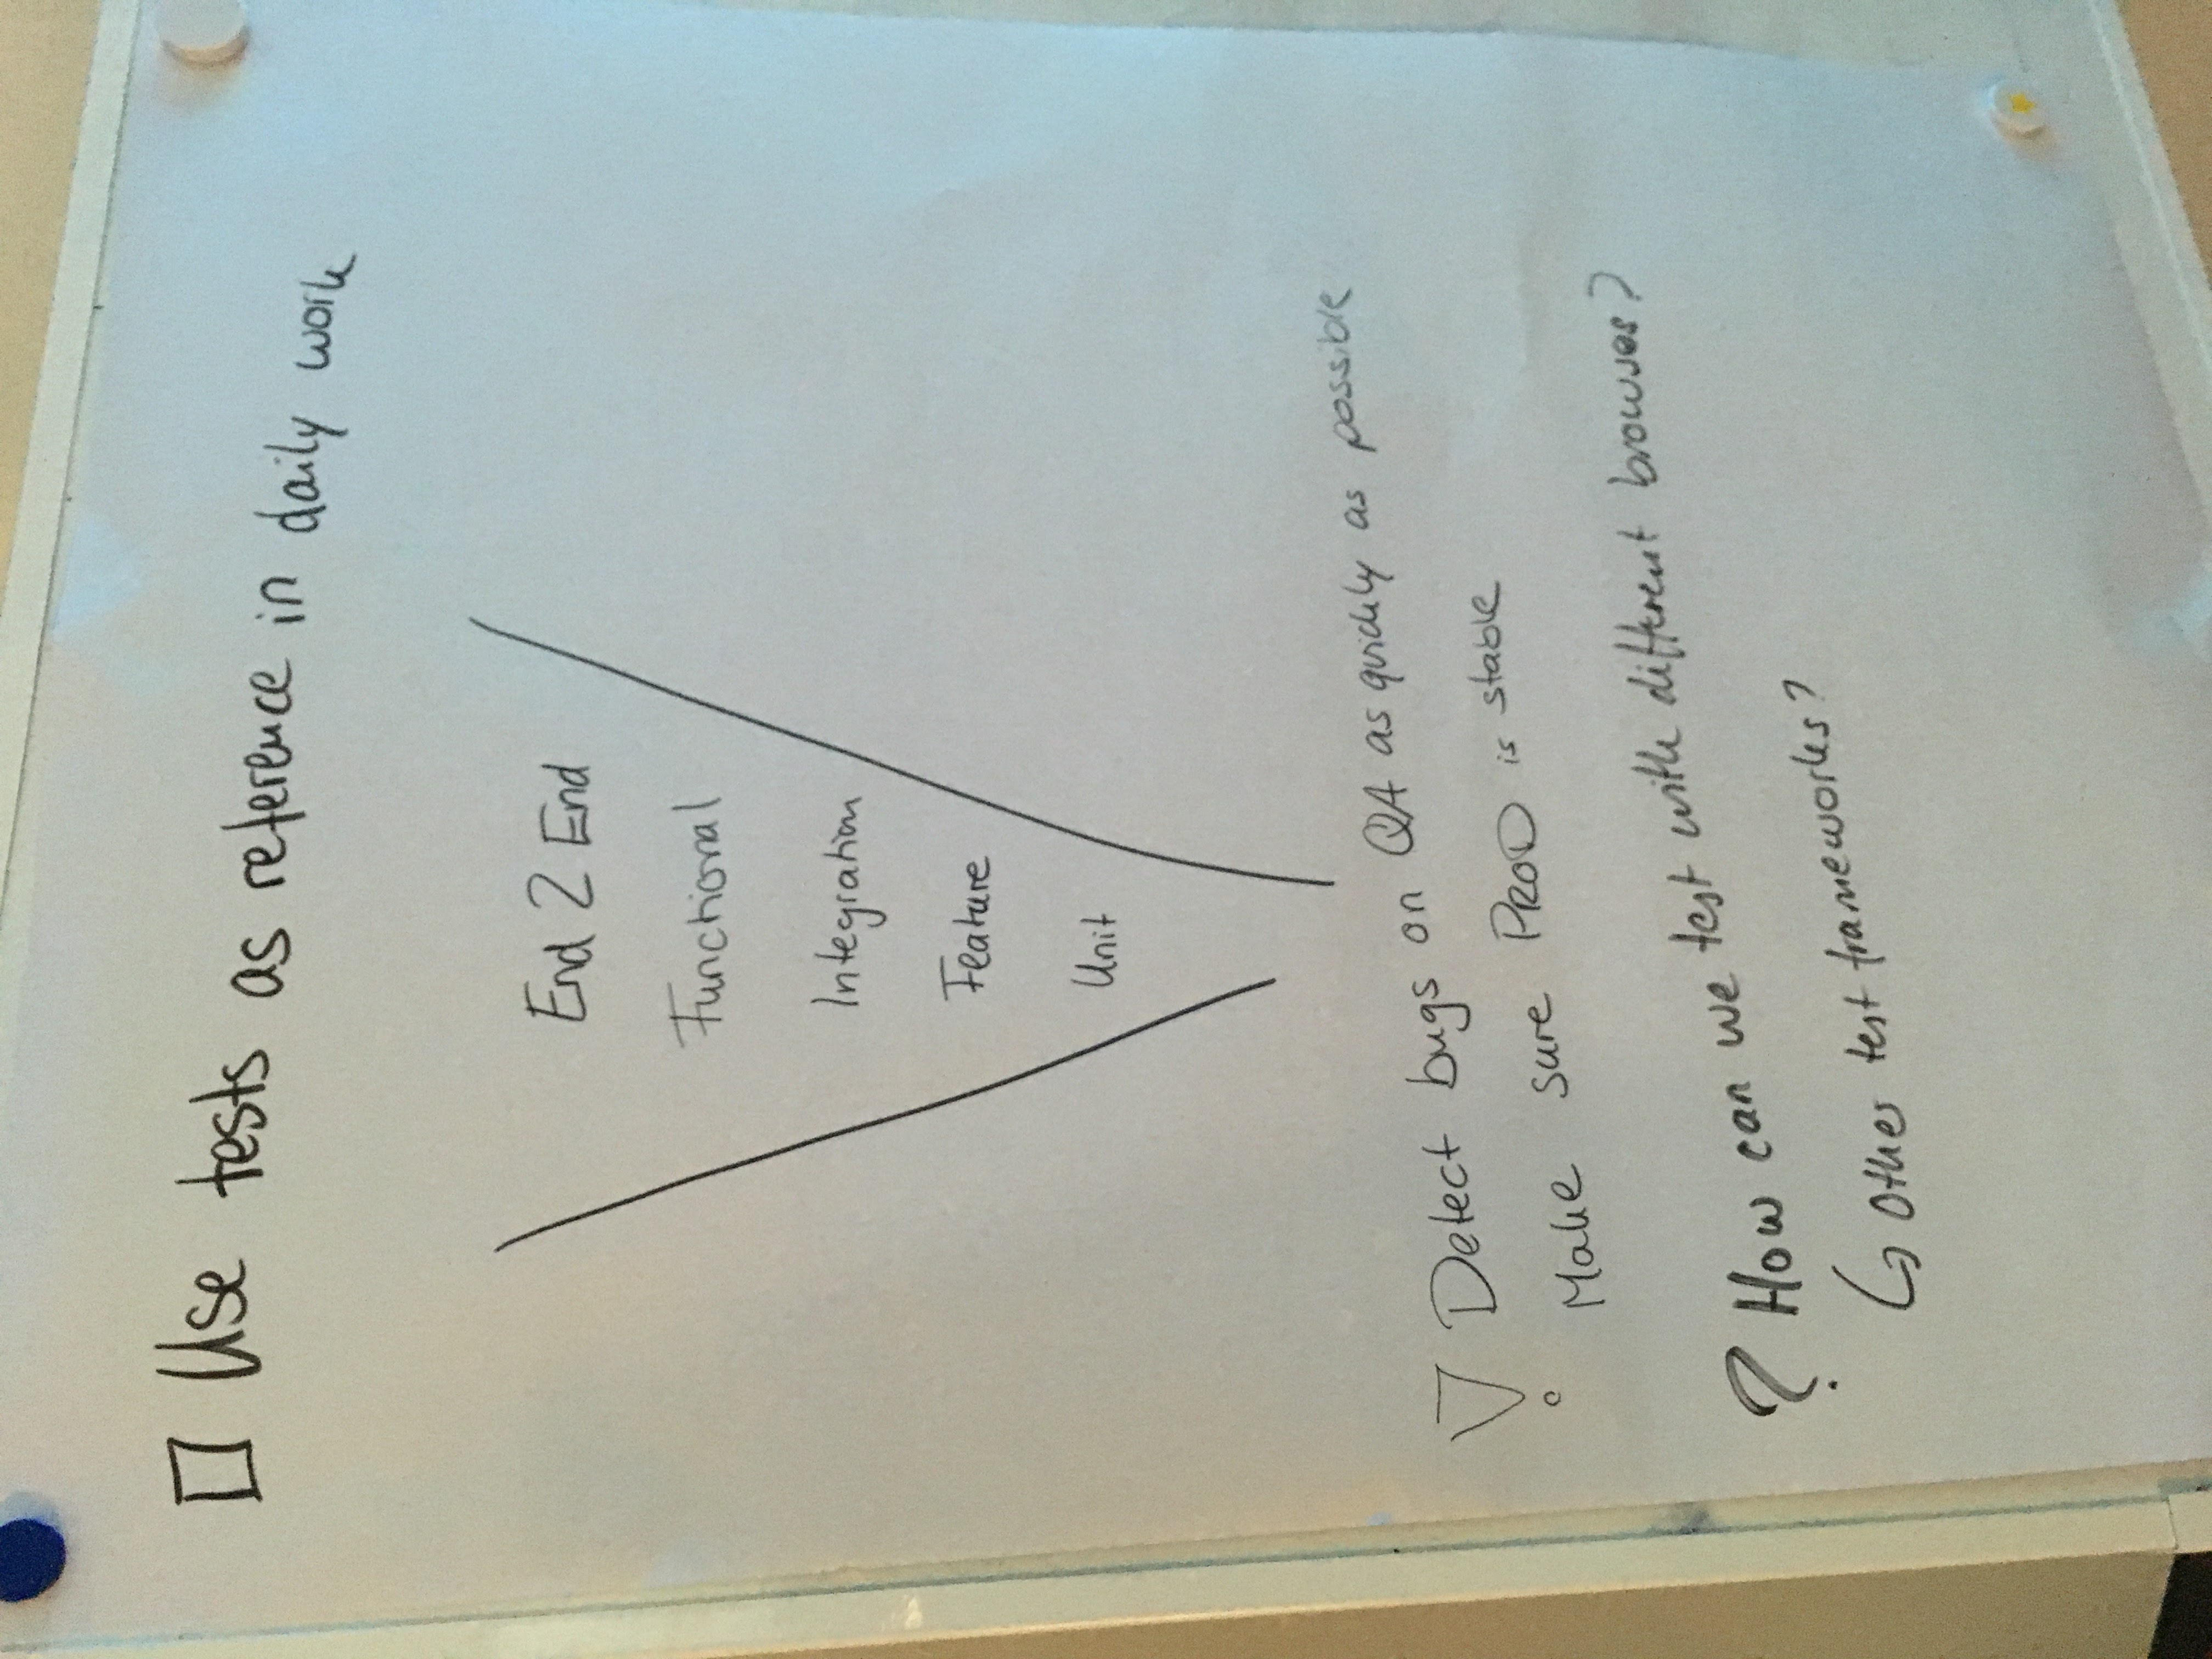 Use tests as reference in daily work
End 2 End
Functional
Integration
Feature
Unit
Detect bugs on QA as quickly as possible
Make sure PROD is stable
? How can we test with different browses?
↳ other test frameworks?